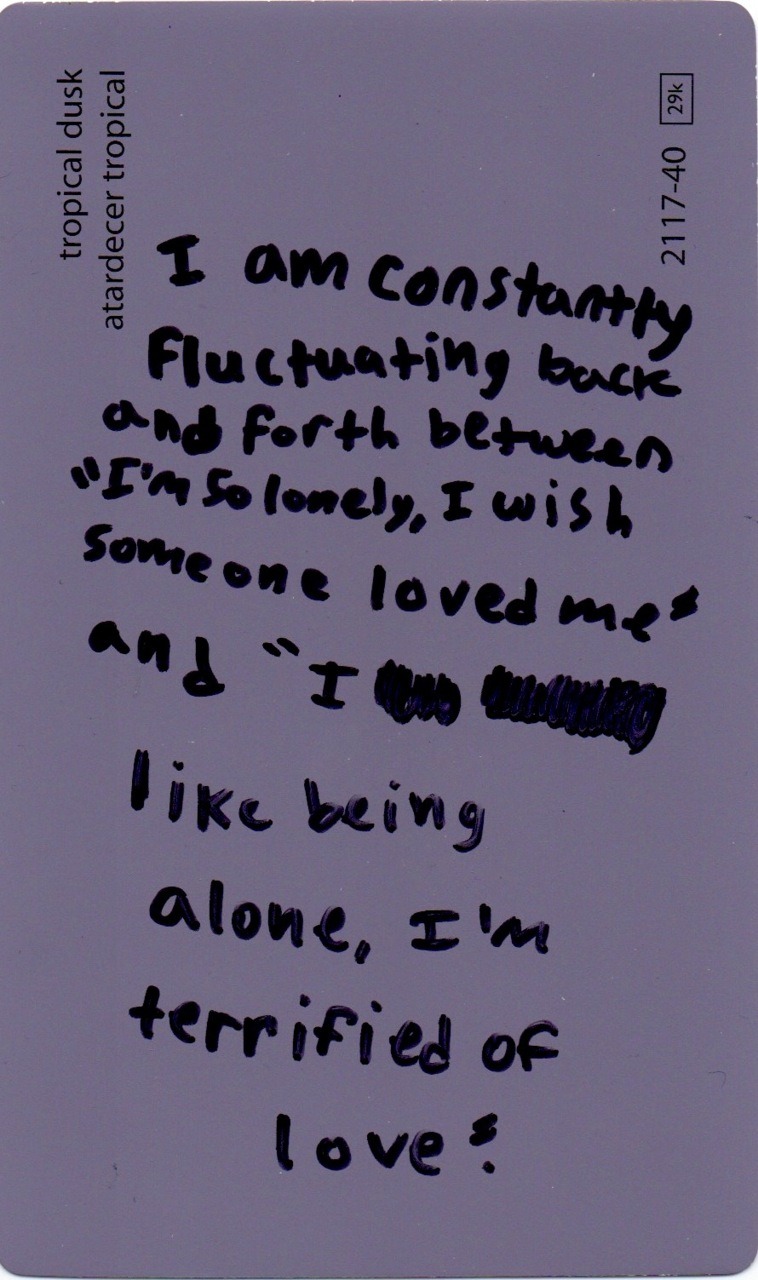 tropical dusk
atardecer tropical
29k
2117-40
I am constantly
fluctuating back
and forth between
"I'm so lonely, I wish
someone loved me"
and "I
like being
alone, I'm
terrified of
love".